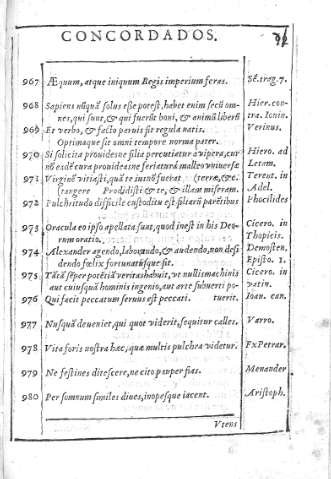 CONCORDADOS.
967 Æquum, atque iniquum Regis imperium feras. Sē.trag.7.
968 Sapiens nūquā solus esse potest, habet enim secū om- Hier.con-
nes, qui sunt, & qui fuerūt boni, & animū liberū tra. Iouin.
969 Et verbo, & facto paruis sit regula natis. Verinus.
Optimaque sit omni tempore norma pater.
970 Si solicita prouides ne filia percutiatur a vipera, cur Hiero. ad
nō eadē cura prouides ne feriatur à malleo vniuersæ Letam.
971 Virginē vitiasti, quā te ius nō fuerat (terræ, & c. Terent. in
(tangere Prodidisti & te, & illam miseram. Adel.
972 Pulchritudo difficile custoditur est Phocilides
973 Oracula eo ipso apellata sunt, quod inest in his Deo- Cicero, in
rum oratio. Thopicis.
974 Alexander agendo, laborando, & audendo, non desi Demosten,
dendo fœlix fortunatusque sit. Episto. 1.
975 Tātā sēper potētiā veritas habuit, vt nullis machinis Cicero. in
aut cuiusquā hominis ingenio, aut arte subuerti po- vatin.
976 Qui facit peccatum seruus est peccati. tuerit. Ioan. can.
977 Nusquā deueniet, qui quot viderit, sequitur calles. Varro.
978 Vita foris nostra hæc, quæ multis pulchra videtur. Ex Petrar.
979 Ne festines ditescere, ne cito pauper fias. Menander
980 Per somnum similes diues, inopesque iacent. Aristoph.
Vtens